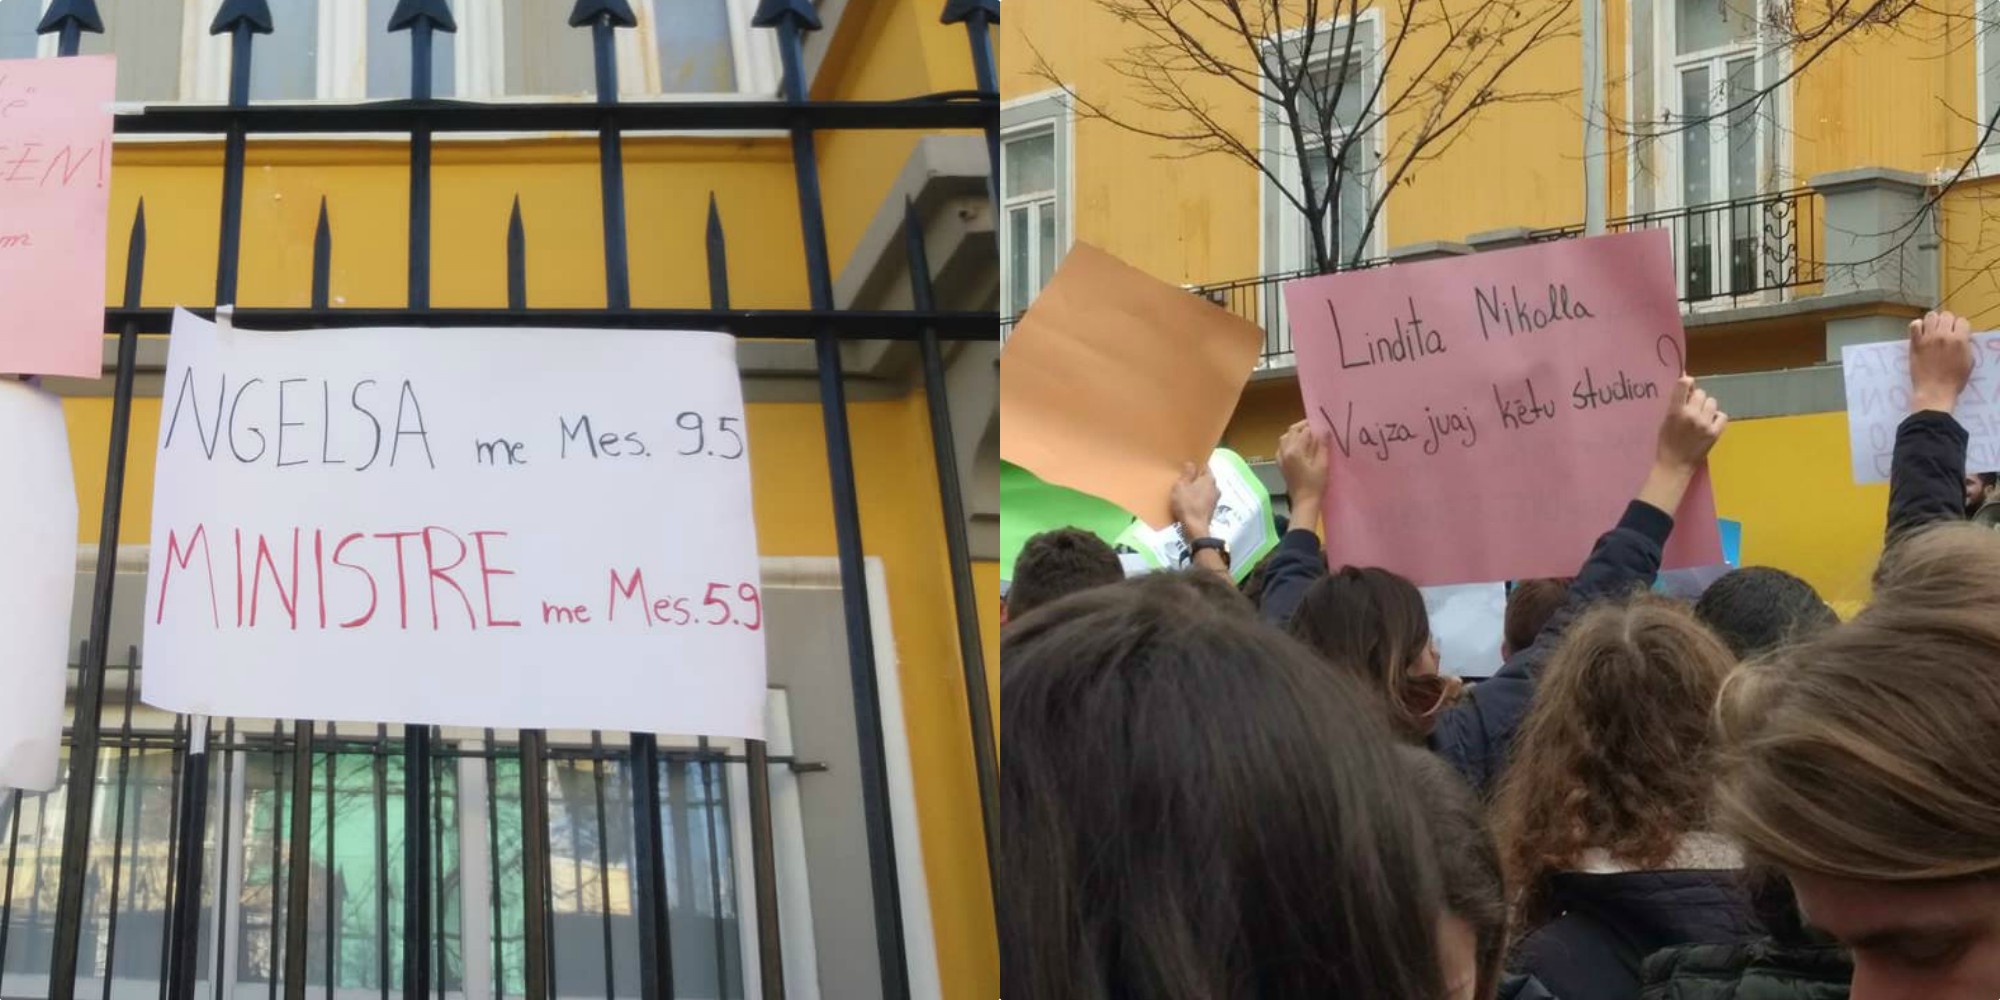 ËN!
NGELSA me Mes. 9.5
MINISTRE me Mes. 5.9
Lindita Nikolla
Vajza juaj këtu studion?